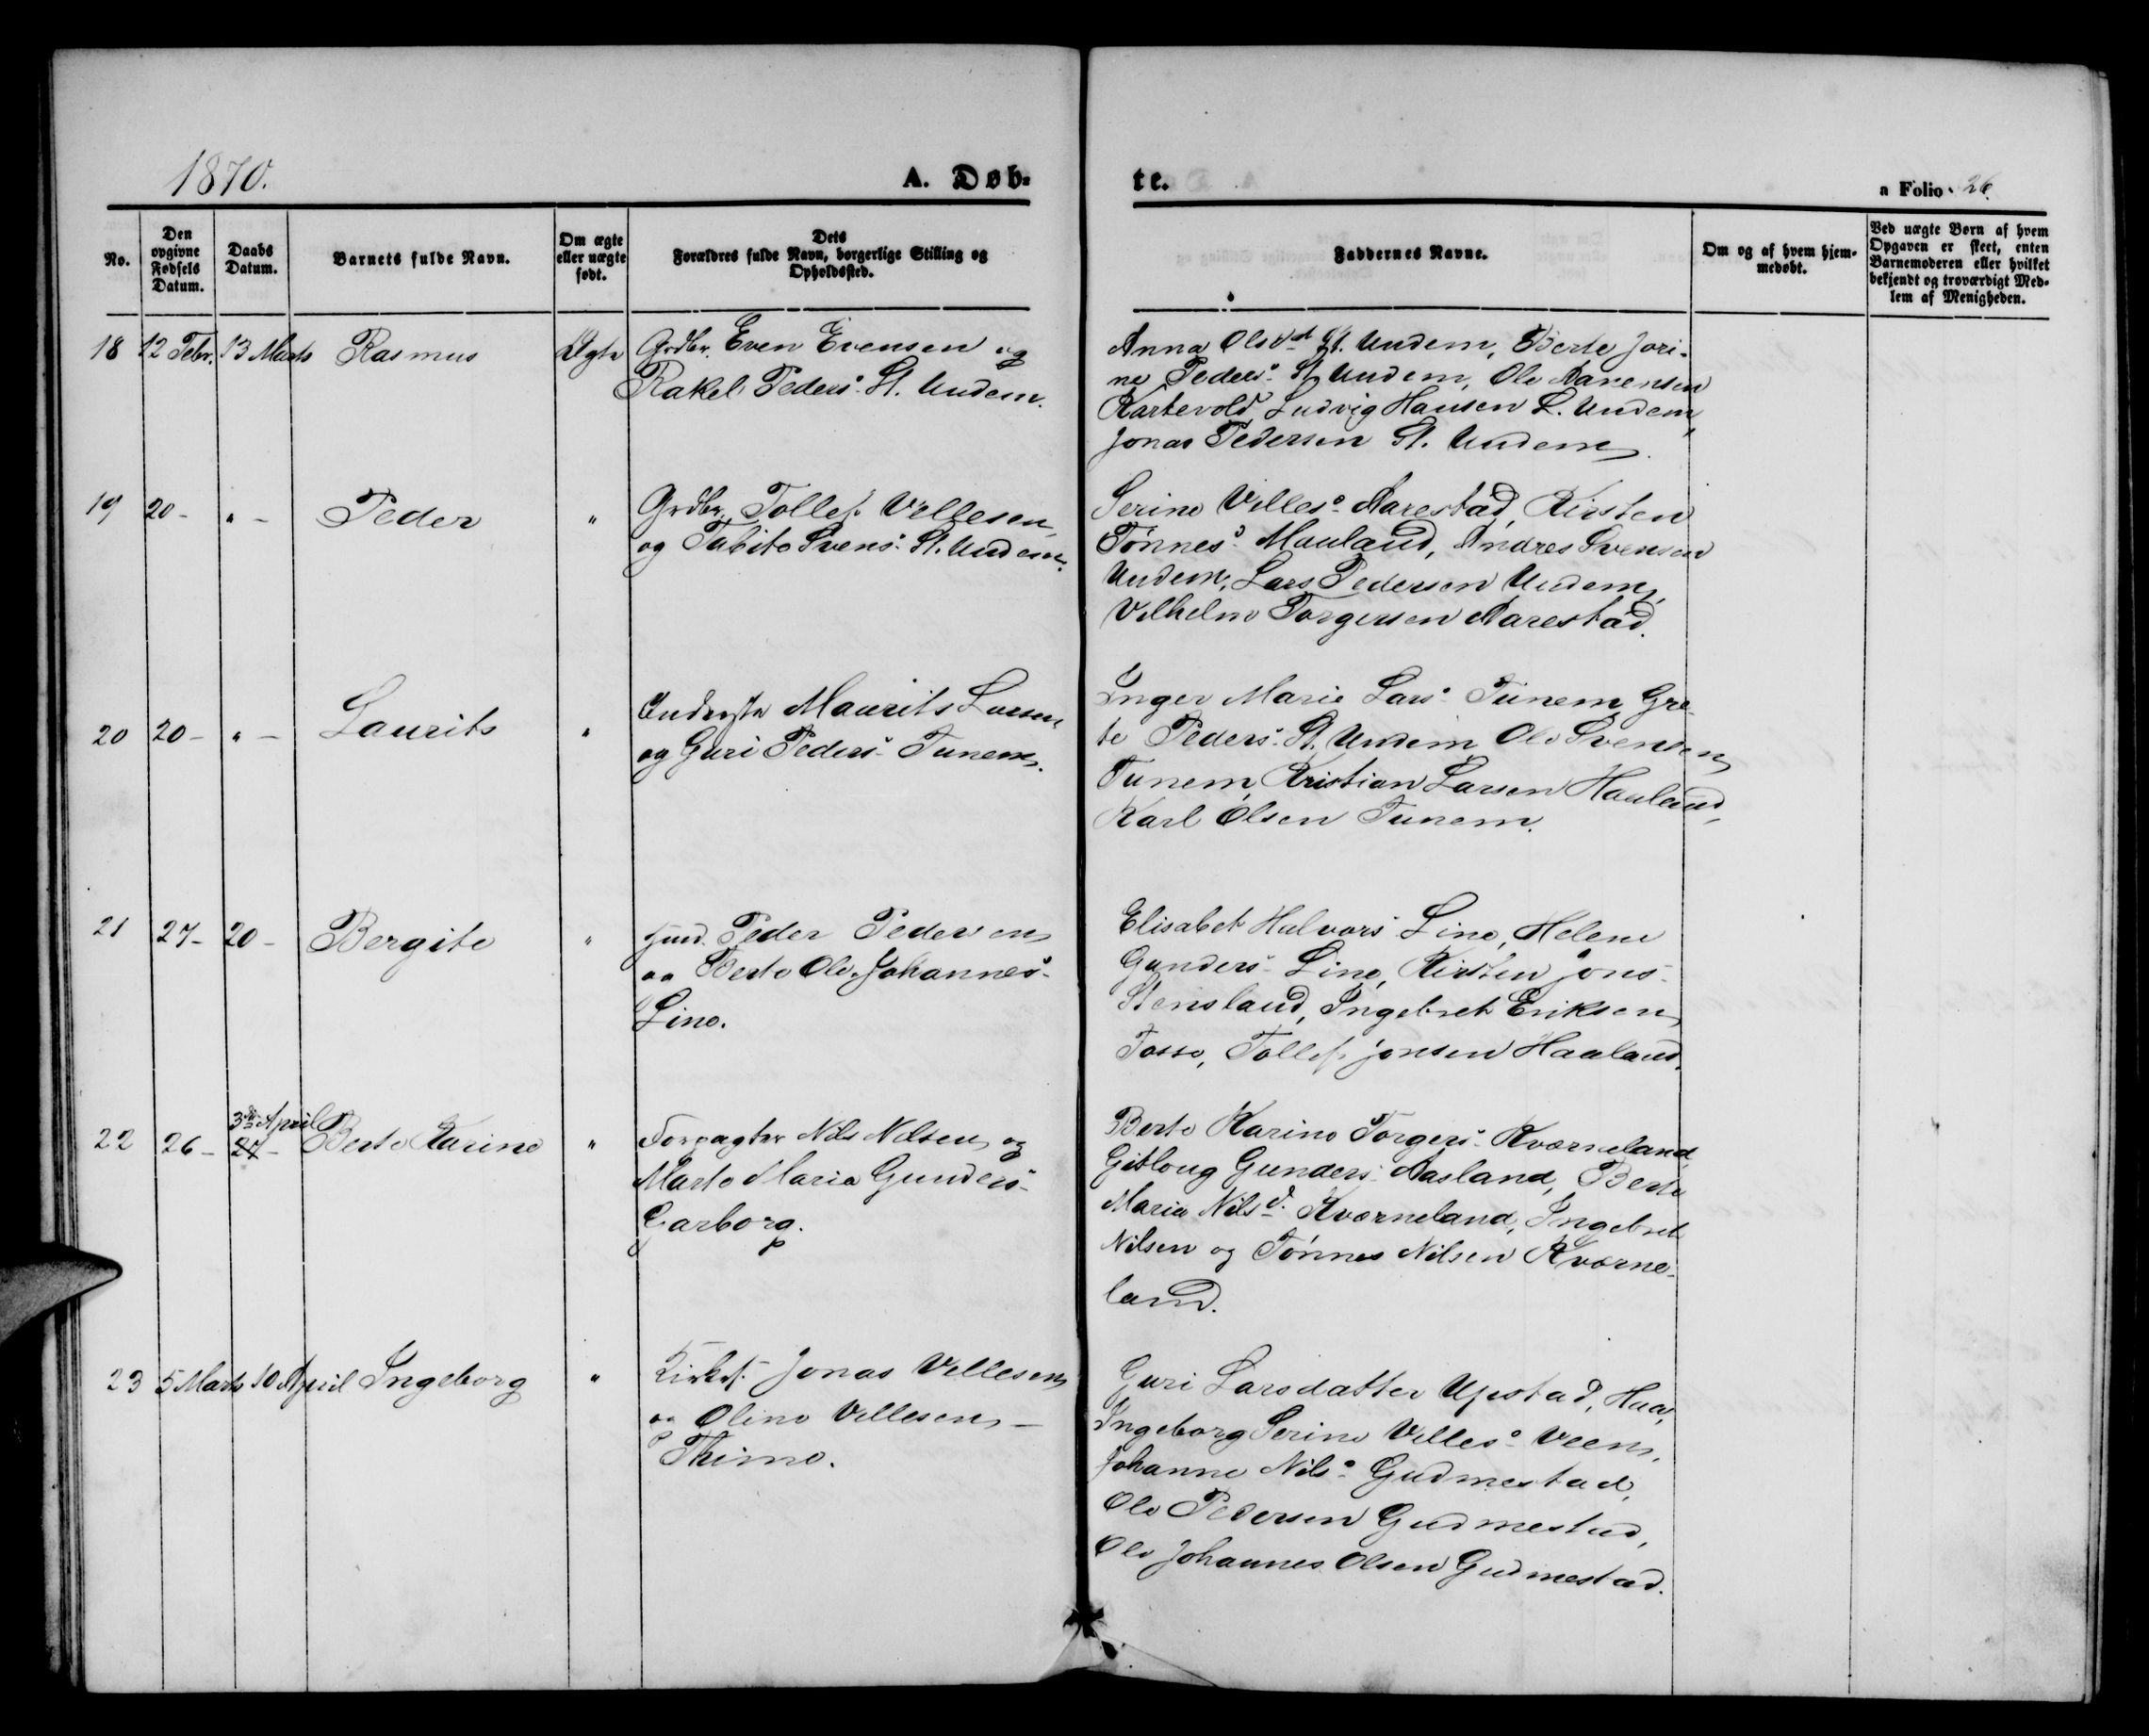 1870.
A. Døb-
te.
a Folio 26.
No.
Den opgivne Fødsels Datum.
Daabs Datum.
Barnets fulde Navn.
Om ægte eller uægte født.
Dets Forældres fulde Navn, borgerlige Stilling og Opholdssted.
Faddernes Navne.
Om og af hvem hjemmedøbt.
Ved uægte Børn af hvem Opgaven er skeet, enten Barnemoderen eller hvilket bekjendt og troværdigt Medlem af Menigheden.
18 12 Febr. 13 Marts Rasmus Ægte Grdbr. Even Evensen og
Rakel Peders: St. Undem.
Anna Olsdt St. Undem, Berte Jori-
ne Peders: St. Undem, Ole Aanensen
Kartevold, Ludvig Hansen L. Undem,
Jonas Pedersen St. Undem.
19 20 - " - Peder " Grdbr. Tollef Villesen
og Tabite Svens: St. Undem.
Serine Villes: Aarestad, Kirsten
Tønnes: Mauland, Andres Svensen
Undem, Lars Pedersen Undem,
Vilhelm Torgersen Aarestad.
20 20 - " - Laurits " Inderste Maurits Larsen
og Guri Peders: Tunem.
Inger Marie Lars: Tunem, Gre-
te Peders: St. Undem, Ole Svensen
Tunem, Kristian Larsen Haaland,
Karl Olsen Tunem.
21 27 - 20 - Bergite " Huud. Peder Pedersen
og Berte Ole. Johannes-
Line.
Elisabet Halvors: Line, Helene
Gunders: Line, Kirsten Jons-
Stensland, Ingebret Eriksen
Fosse, Tollef Jonsen Haaland.
22 26 - 27 - 3die April Berte Karine " Forpagter Nils Nilsen og
Marte Maria Gunders-
Garborg.
Berte Karine Torgers: Kværneland,
Gitloug Gunders: Aasland, Berte
Maria Nilsd. Kværneland, Ingebret
Nilsen og Tønnes Nilsen Kværne-
land.
23 5 Marts 10 April Ingeborg " Kirkes. Jonas Villesen
og Oline Villesen -
Thime.
Guri Larsdatter Upstad, Haa,
Ingeborg Serine Villes: Veen,
Johanne Nils: Gudmestad,
Ole Pedersen Gudmestad,
Ole Johannes Olsen Gudmestad.